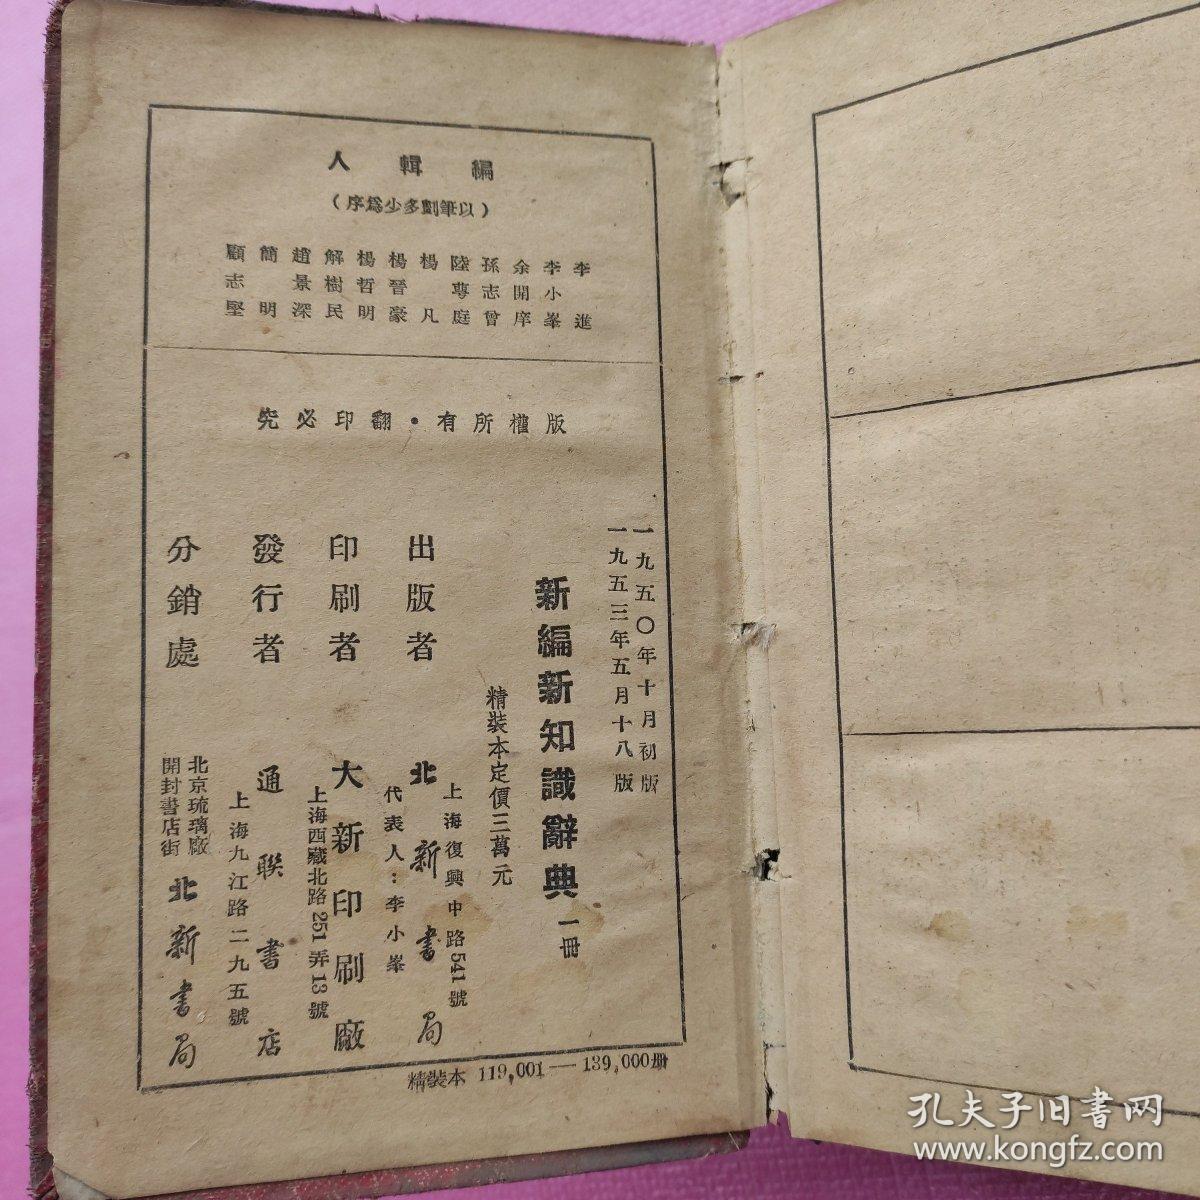 編輯人
(以筆劃多少爲序)
李進
李小峯
余開庠
孫志曾
陸專庭
楊凡
楊晉豪
楊哲明
解樹民
趙景深
簡明
顧志堅
版權所有·翻印必究
一九五〇年十月初版
一九五三年五月十八版
新編新知識辭典一冊
精裝本定價三萬元
出版者 北新書局
上海復興中路541號
代表人:李小峯
印刷者 大新印刷廠
上海西藏北路251弄13號
發行者 通聯書店
上海九江路二九五號
分銷處 北新書局
北京琉璃廠
開封書店街
精裝本 119,001—139,000册
孔夫子旧書网
www.kongfz.com